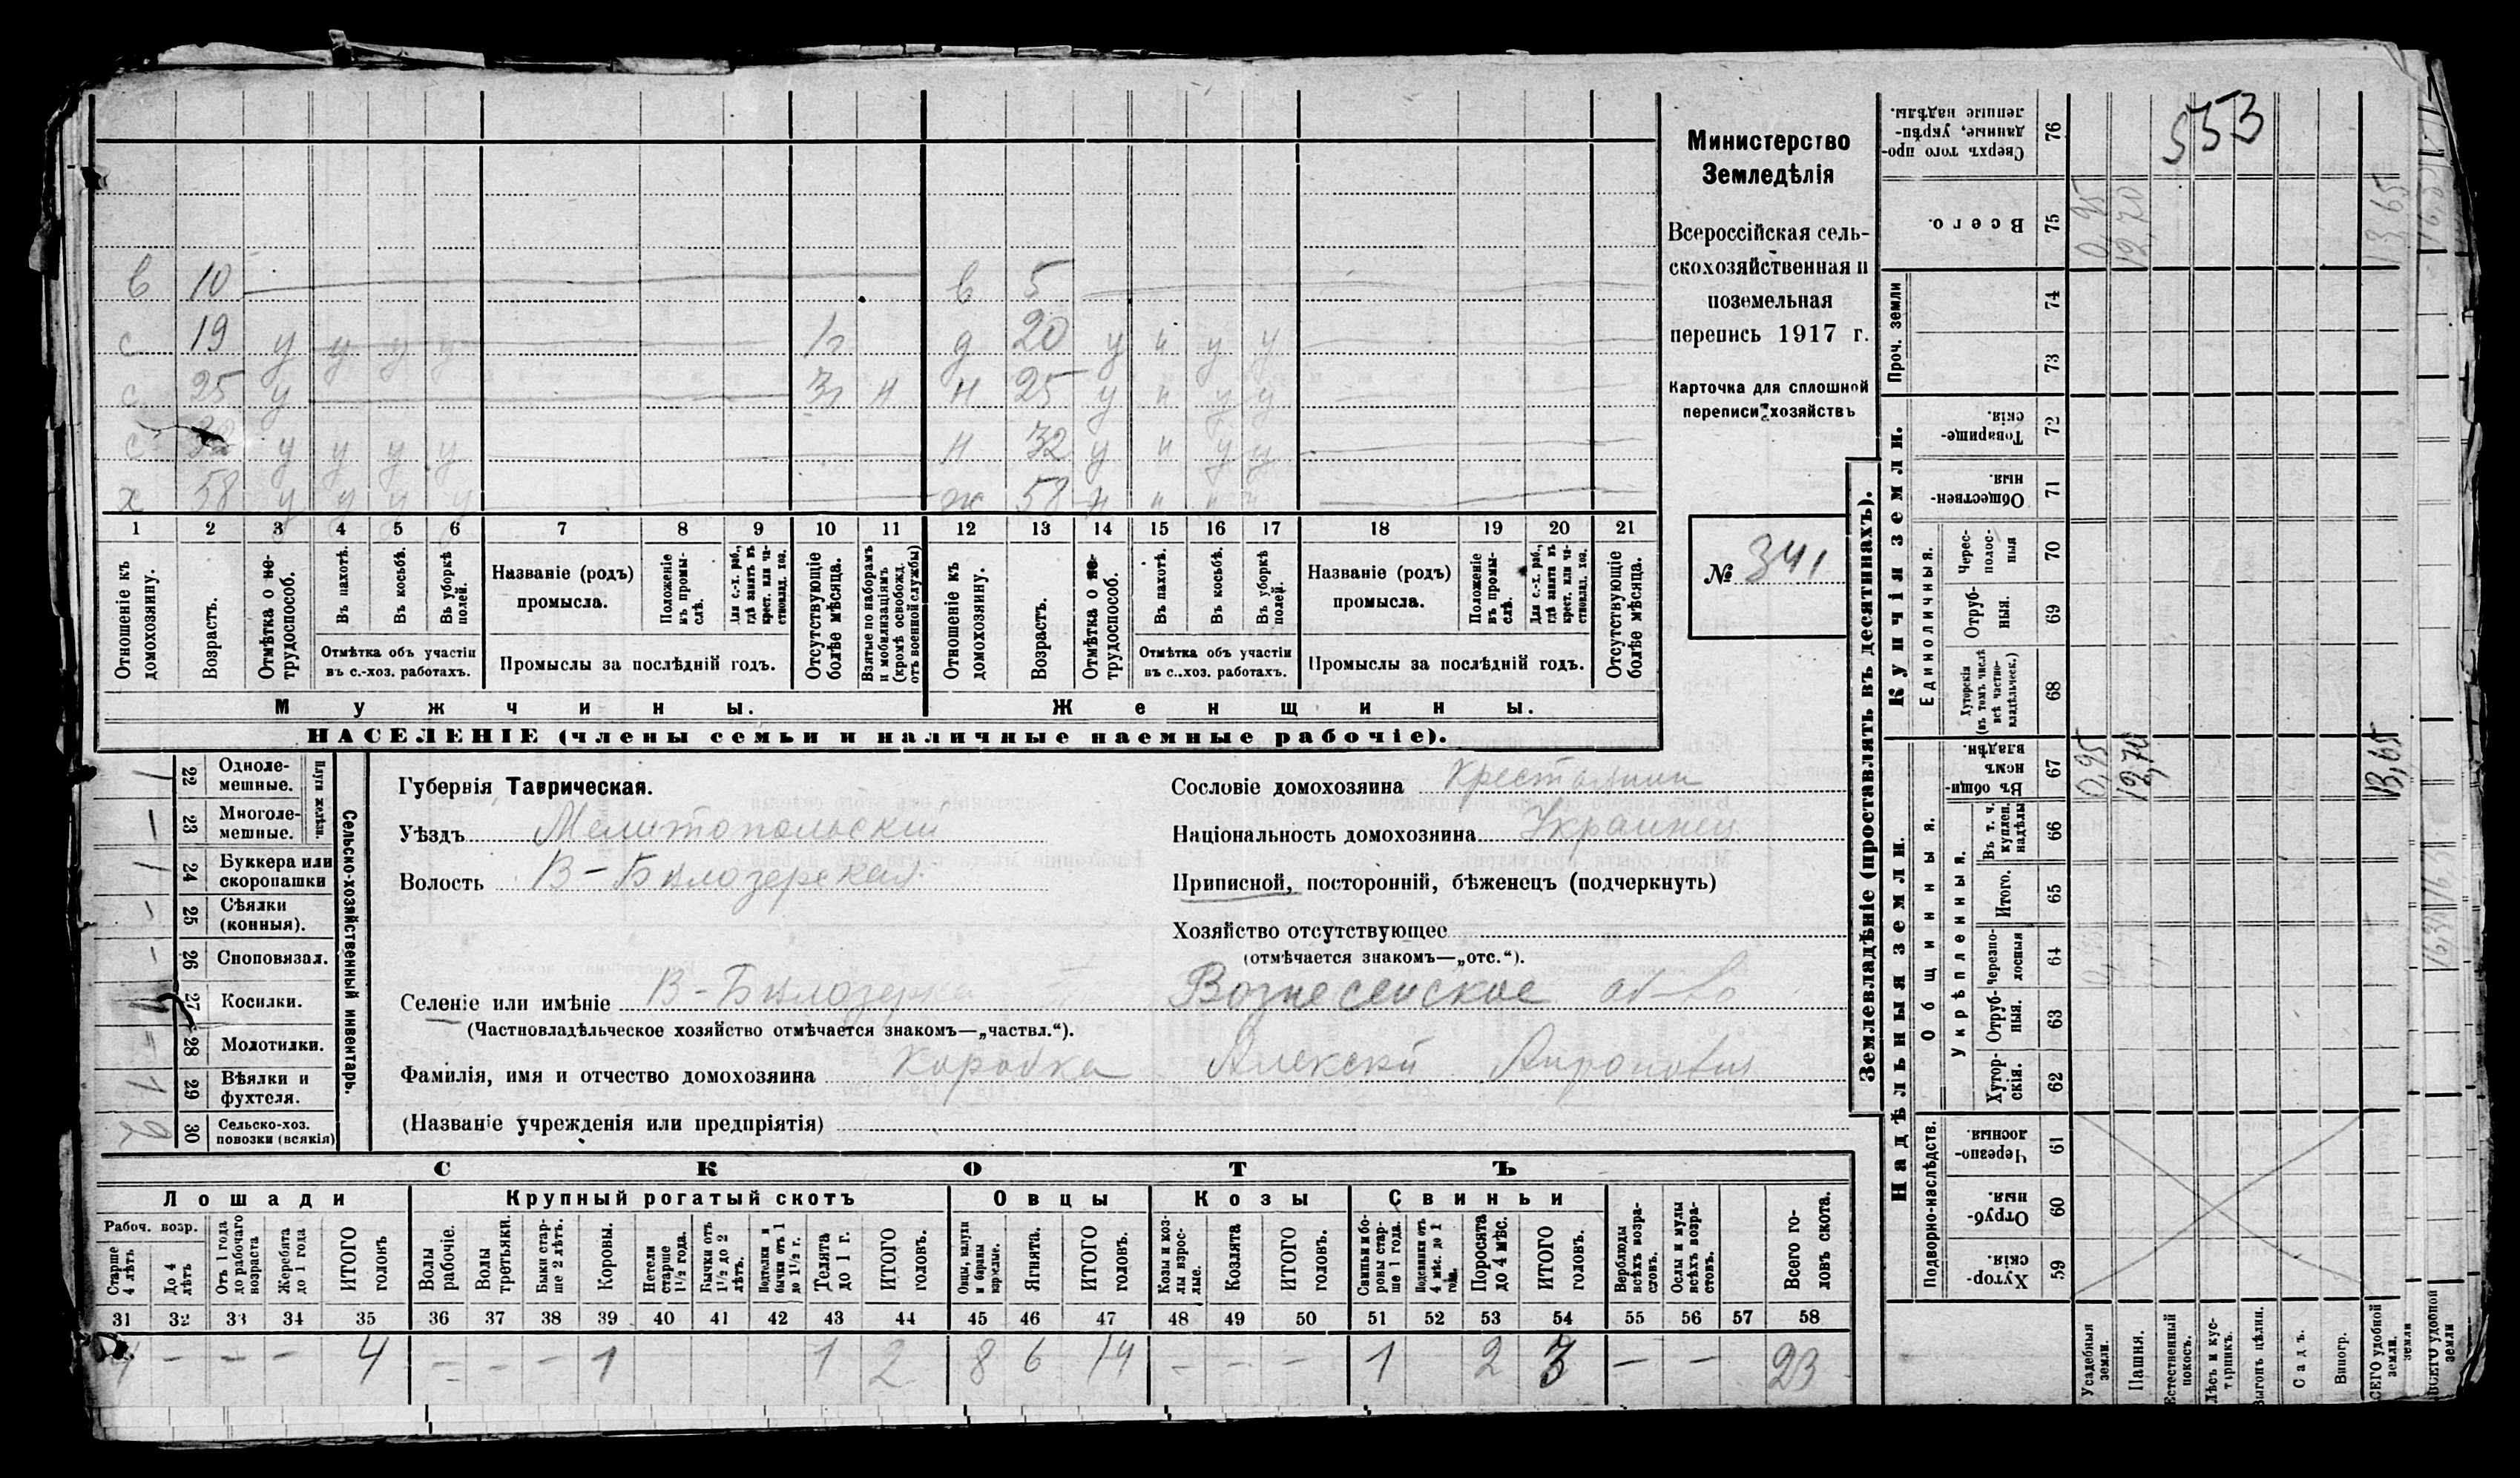 553
Министерство
Земледѣлія
Всероссійская сель-
скохозяйственная и
поземельная
перепись 1917 г.
Карточка для сплошной
переписи хозяйствъ
№ 341
в 10 в 5
с 19 у у у у 1г д 20 у н у у
с 25 у 3г н н 25 у н у у
с 32 у у у у н 32 у н у у
х 58 у у у у ж 58 н н н н
1 2 3 4 5 6 7 8 9 10 11 12 13 14 15 16 17 18 19 20 21
Отношеніе къ домохозяину.
Возрастъ.
Отмѣтка о не-трудоспособ.
Въ пахотѣ.
Въ косьбѣ.
Въ уборкѣ полей.
Отмѣтка объ участіи
въ с.-хоз. работахъ.
Названіе (родъ)
промысла.
Положеніе въ промы-слѣ.
Для с.-х. раб., гдѣ занятъ въ крест. или ча-стновлад. хоз.
Промыслы за послѣдній годъ.
Отсутствующіе болѣе мѣсяца.
Взятые по наборамъ и мобилизаціямъ (кромѣ освобожд. отъ военной службы)
Отношеніе къ домохозяину.
Возрастъ.
Отмѣтка о не-трудоспособ.
Въ пахотѣ.
Въ косьбѣ.
Въ уборкѣ полей.
Отмѣтка объ участіи
въ с.-хоз. работахъ.
Названіе (родъ)
промысла.
Положеніе въ промы-слѣ.
Для с.-х. раб., гдѣ занята въ крест. или ча-стновлад. хоз.
Промыслы за послѣдній годъ.
Отсутствующіе болѣе мѣсяца.
Мужчины. Женщины.
НАСЕЛЕНІЕ (члены семьи и наличные наемные рабочіе).
Сельско-хозяйственный инвентарь.
Плуги желѣзн.
1 22 Одноле-мешные.
— 23 Многоле-мешные.
1 24 Буккера или скоропашки
- 25 Сѣялки (конныя).
- 26 Сноповязал.
27 Косилки.
28 Молотилки.
1 29 Вѣялки и фухтеля.
2 30 Сельско-хоз. повозки (всякія)
Губернія Таврическая.
Уѣздъ Мелитопольский
Волость В-Бѣлозерская
Селеніе или имѣніе В-Бѣлозерка Вознесенское об-во
(Частновладѣльческое хозяйство отмѣчается знакомъ—„частвл.“).
Фамилія, имя и отчество домохозяина Коробка Алексей
(Названіе учрежденія или предпріятія)
Сословіе домохозяина Крестьянин
Національность домохозяина Украинец
Приписной, посторонній, бѣженецъ (подчеркнуть)
Хозяйство отсутствующее
(отмѣчается знакомъ—„отс.“).
СКОТЪ
Лошади Крупный рогатый скотъ Овцы Козы Свиньи
Рабоч. возр.
Старше 4 лѣтъ
До 4 лѣтъ
Отъ 1 года до рабочаго возраста
Жеребята до 1 года
ИТОГО головъ
Волы рабочіе.
Волы третьяки.
Быки стар-ше 2 лѣтъ.
Коровы.
Нетели старше 1½ года.
Бычки отъ 1½ до 2 лѣтъ.
Подтелки и бычки отъ 1 до 1½ г.
Телята до 1 г.
ИТОГО головъ.
Овцы, валухи и бараны взрослые.
Ягнята.
ИТОГО головъ.
Козы и коз-лы взрос-лые.
Козлята
ИТОГО головъ.
Свиньи и бо-ровы стар-ше 1 года.
Подсвинки отъ 4 мѣс. до 1 года.
Поросята до 4 мѣс.
ИТОГО головъ.
Верблюды всѣхъ возра-стовъ.
Ослы и мулы всѣхъ возра-стовъ.
Всего го-ловъ скота.
31 32 33 34 35 36 37 38 39 40 41 42 43 44 45 46 47 48 49 50 51 52 53 54 55 56 57 58
4 — — — 4 — — — 1 1 2 8 6 14 — — — 1 2 3 — — 23
Землевладѣніе (проставлять въ десятинахъ).
Купчія земли.
Надѣльныя земли.
Проч. земли
Единоличныя.
Общинныя.
Укрѣпленныя.
Подворно-наслѣдств.
76 Сверхъ того про-данные, укрѣп-ленные надѣлы.
75 Всего. 0,95 12,70 13,65
74
73
72 Товарище-скія.
71 Обществен-ныя.
70 Черес-полос-ныя
69 Отруб-ныя.
68 Хуторскія (въ томъ числѣ всѣ частно-владѣльческ.)
67 Въ общин-номъ владѣн. 0,95 12,70 13,65
66 Въ т. ч. куплен. надѣлы
65 Итого.
64 Черезпо-лосныя
63 Отруб-ныя.
62 Хутор-скія.
61 Черезпо-лосныя.
60 Отруб-ныя.
59 Хутор-скія.
Усадебныя земли.
Пашня.
Естественный покосъ.
Лѣсъ и кус-тарникъ.
Выгонъ цѣлин.
Садъ.
Виногр.
ВСЕГО удобной земли.
ВСЕГО удобной земли